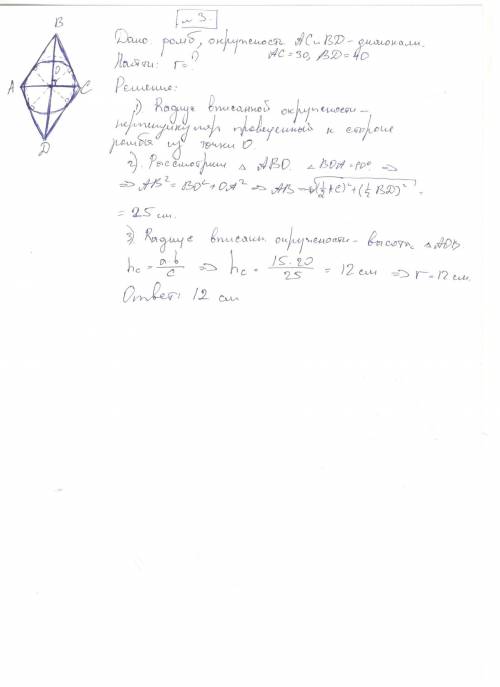 №3.
B
Дано: ромб, окружность AC и BD - диагонали.
AC = 30, BD = 40
Найти: r = ?
O
A C
Решение:
1) Радиус вписанной окружности -
перпендикуляр проведенный к стороне
ромба из точки O.
D
2) Рассмотрим △ ABO. ∠BOA = 90° ⇒
⇒ AB² = BO² + OA² ⇒ AB = √(½AC)² + (½BD)² =
= 25 см.
3) Радиус вписан. окружности - высота △ AOB
hc = a·b/c ⇒ hc = 15·20/25 = 12 см ⇒ r = 12 см.
Ответ: 12 см